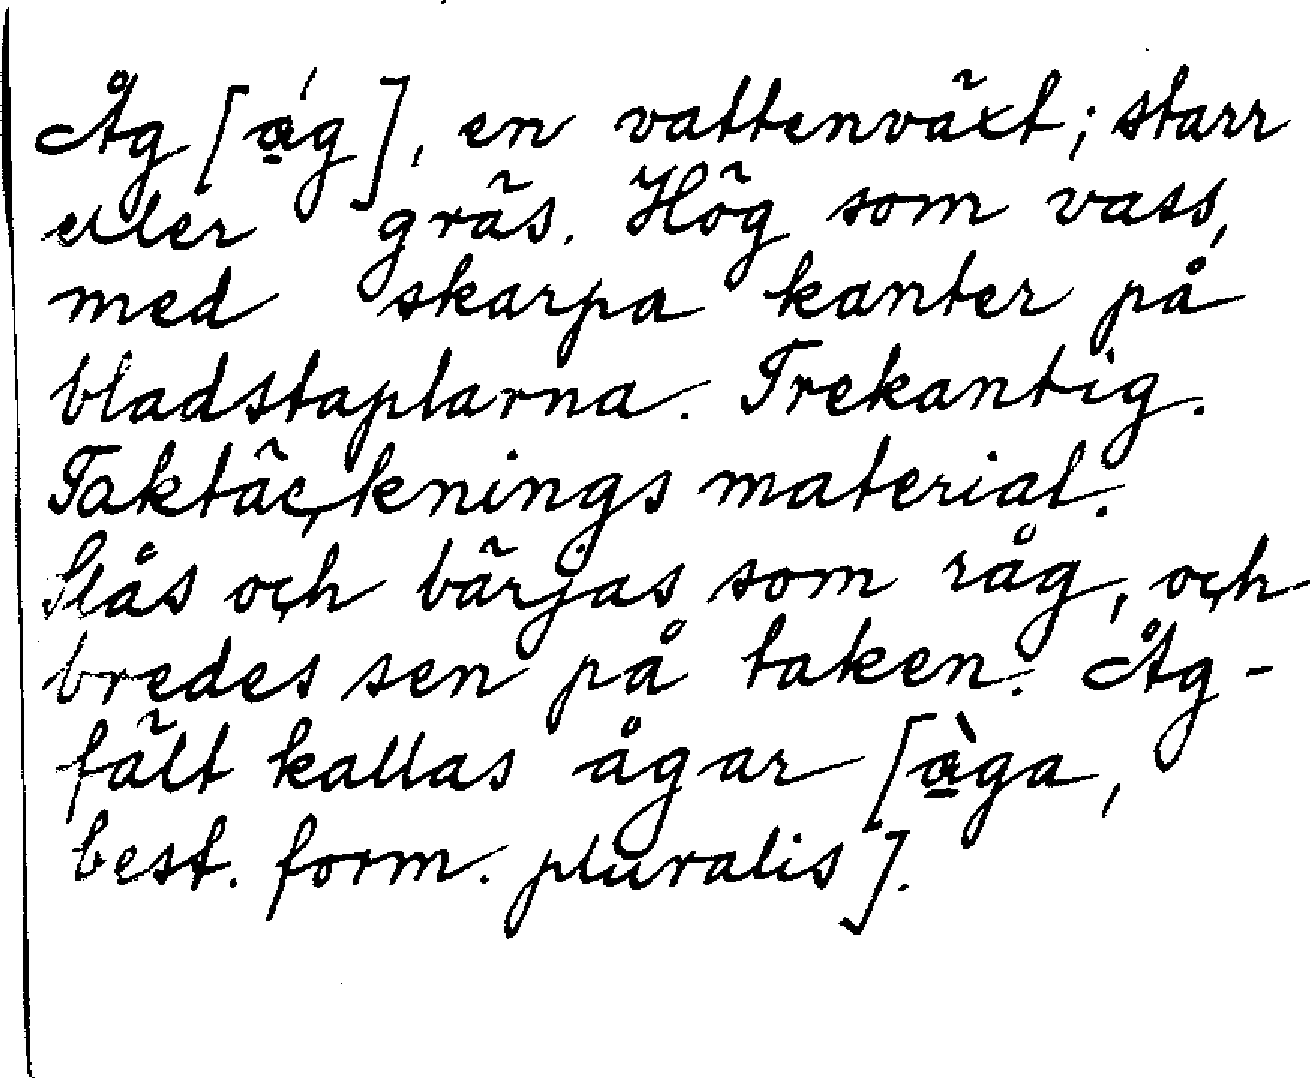 Åg [á̲g], en vattenväxt; starr
eller gräs. Hög som vass,
med skarpa kanter på
bladstaplarna. Trekantig.
Taktäckningsmaterial.
Slås och bärjas som råg, och
bredes sen på taken. Åg-
fält kallas ågar [à̲ga,
best. form. pluralis].